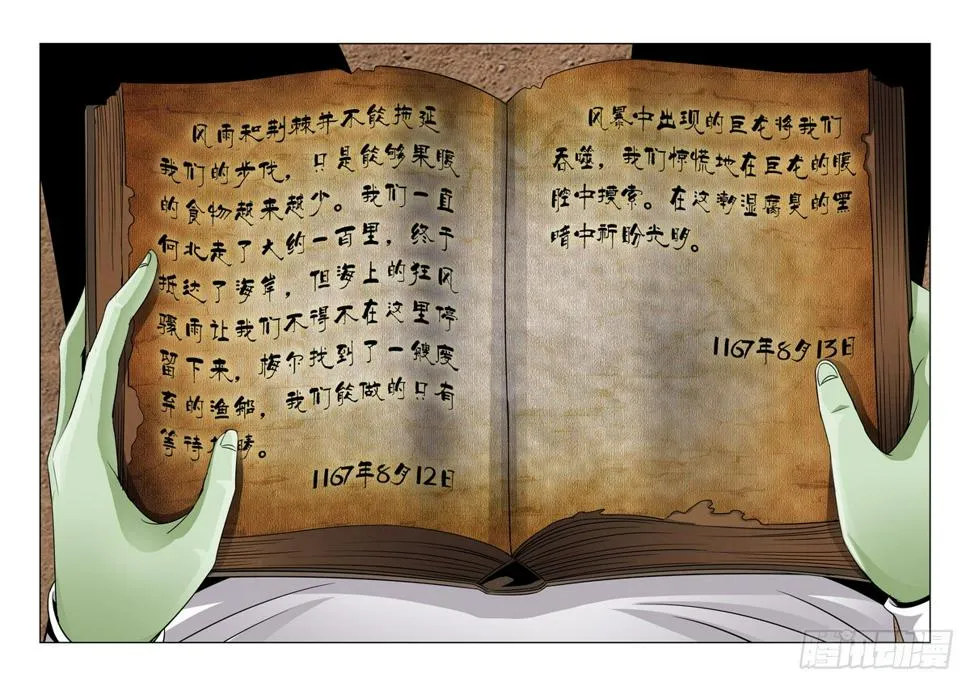 风雨和荆棘并不能拖延
我们的步伐，只是能够果腹
的食物越来越少。我们一直
向北走了大约一百里，终于
抵达了海岸，但海上的狂风
骤雨让我们不得不在这里停
留下来，梅尔找到了一艘废
弃的渔船，我们能做的只有
等待 晴。
1167年8月12日
风暴中出现的巨龙将我们
吞噬，我们惊慌地在巨龙的腹
腔中摸索。在这潮湿腐臭的黑
暗中祈盼光明。
1167年8月13日
腾讯动漫